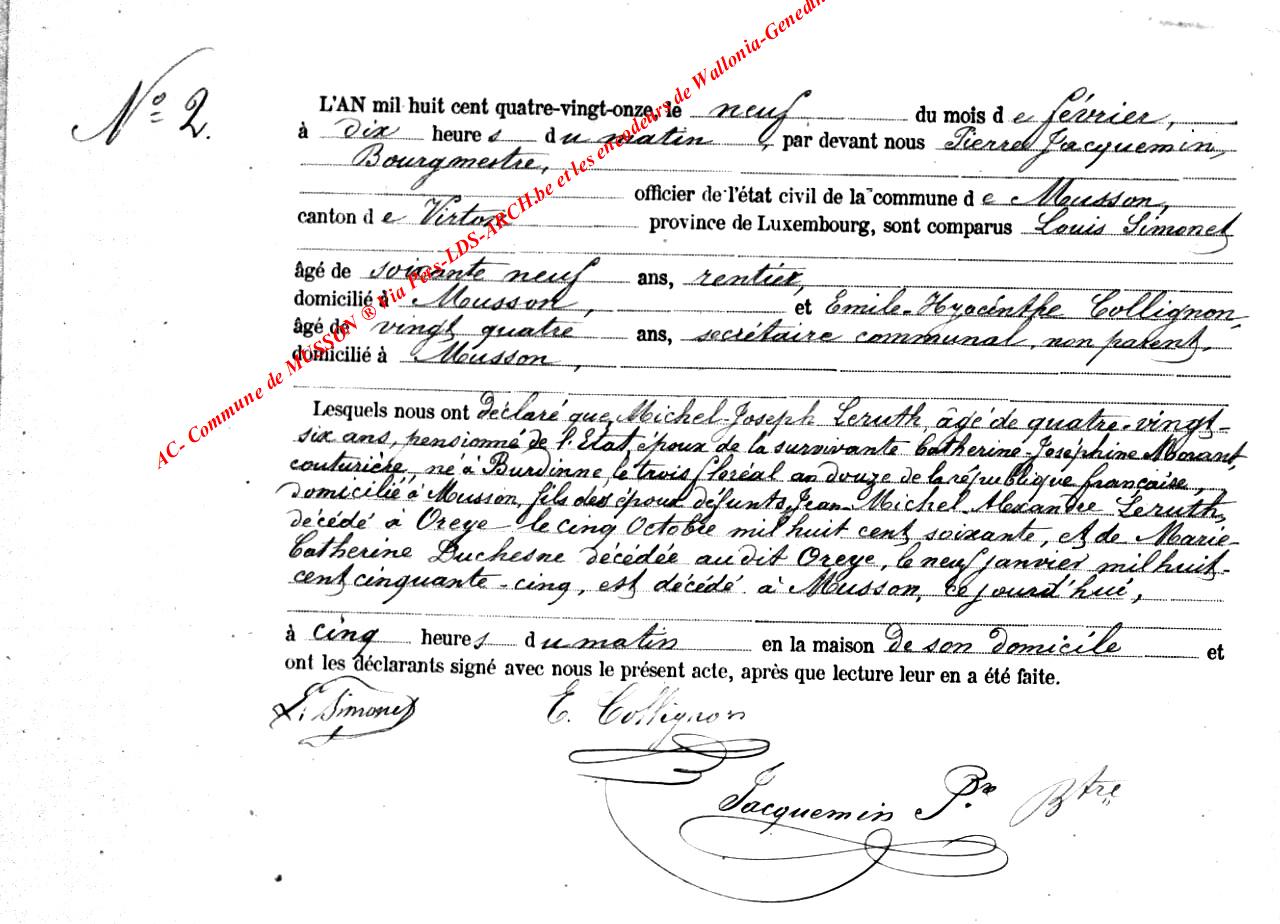 N° 2.
L'AN mil huit cent quatre-vingt-onze, le neuf du mois d e février,
à dix heure s d u matin, par devant nous Pierre Jacquemin,
Bourgmestre,
officier de l'état civil de la commune d e Musson,
canton d e Virton province de Luxembourg, sont comparus Louis Simonet
âgé de soixante neuf ans, rentier,
domicilié à Musson, et Emile-Hyacinthe Collignon,
âgé de vingt quatre ans, secrétaire communal, non parent,
domicilié à Musson,
Lesquels nous ont déclaré que Michel-Joseph Leruth, âgé de quatre-vingt-
six ans, pensionné de l'Etat, époux de la survivante Catherine-Joséphine Morant,
couturière, né à Burdinne, le trois floréal an douze de la république française,
domicilié à Musson, fils des époux défunts, Jean-Michel-Alexandre Leruth,
décédé à Oreye le cinq Octobre mil huit cent soixante, et de Marie-
Catherine Duchesne décédée au dit Oreye, le neuf janvier mil huit-
cent cinquante-cinq, est décédé à Musson, ce jourd'hui,
à cinq heure s d u matin en la maison de son domicile et
ont les déclarants signé avec nous le présent acte, après que lecture leur en a été faite.
L. Simonet E. Collignon
Jacquemin P.re B.tre
AC- Commune de MUSSON ® via Pers-LDS-ARCH.be et les encodeurs de Wallonia-Genedin